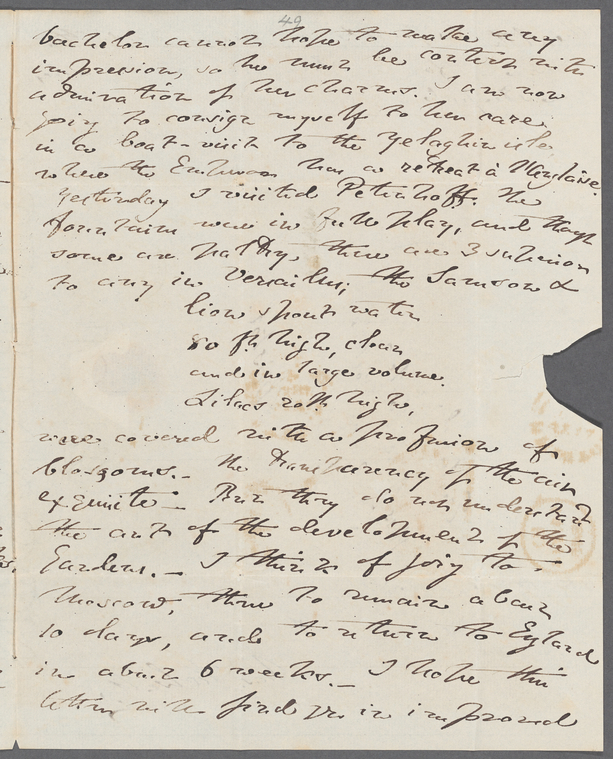 49
bachelor cannot hope to make any
impression, so he must be content with
admiration of her charms. I am now
going to consign myself to her care
in a boat-visit to the Yelaghin isle
where the Empress has a retreat à l'Anglaise.
Yesterday I visited Peterhoff. The
fountains were in full play, and though
some are paltry, there are 3 superior
to any in Versailles; the Samson &
lion spout water
80 ft high, clear
and in large volume.
Lilacs 20 ft high,
were covered with a profusion of
blossoms._ The transparency of the air
exquisite _ But they do not understand
the art of the development of the
Gardens. _ I think of going to
Moscow, there to remain about
10 days, and to return to England
in about 6 weeks. _ I hope this
letter will find you in improved